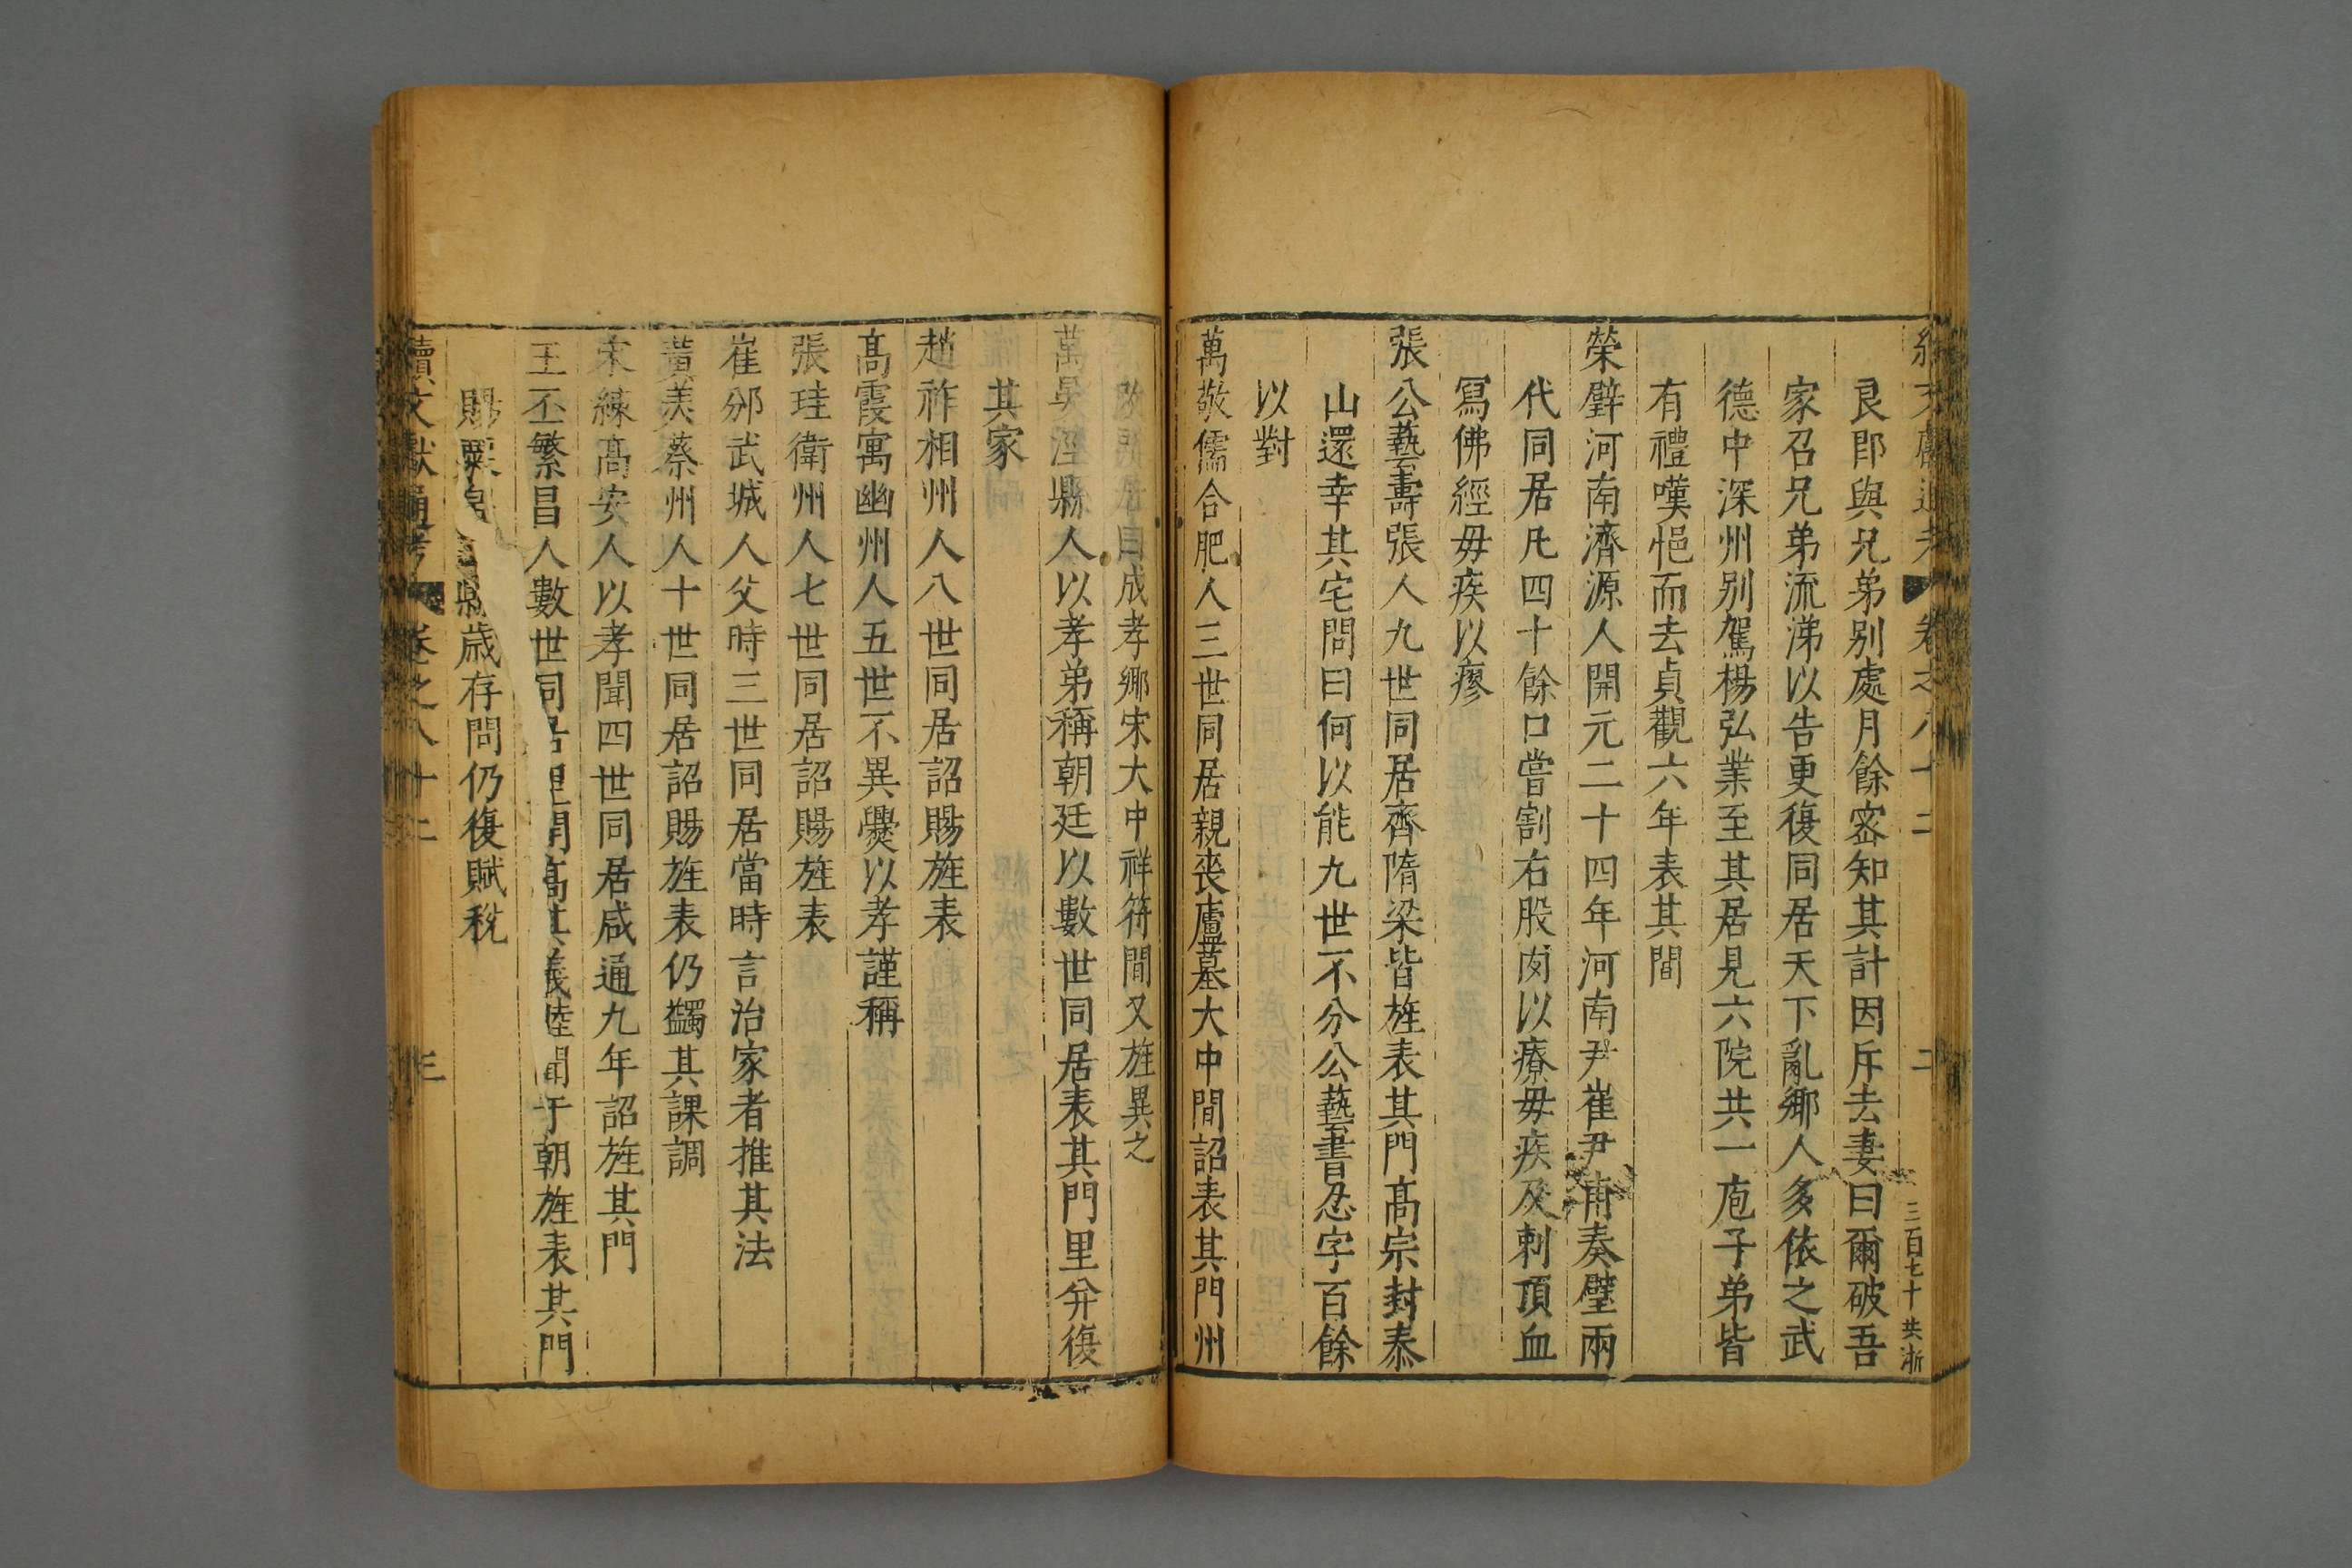 文獻通考 卷之八十二 二 三百七十 共浙
良卽與兄弟别處月餘宻知其計因斥去妻曰爾破吾
家召兄弟流涕以告更復同居天下亂鄉人多依之武
德中深州别駕楊弘業至其居見六院共一庖子弟皆
有禮嘆悒而去貞觀六年表其閭
榮璧河南濟源人開元二十四年河南尹崔尹甫奏璧兩
代同居凡四十餘口嘗割右股肉以療毋疾及刺頂血
冩佛經毋疾以瘳
張公藝壽張人九世同居齊隋梁皆旌表其門髙宗封泰
山還幸其宅問曰何以能九世不分公藝書忍字百餘
以對
萬敬儒合肥人三世同居親喪廬墓大中間詔表其門州
曰成孝鄉宋大中祥符間又旌異之
萬 涇縣人以孝弟稱朝廷以數世同居表其門里并復
其家
趙祚相州人八世同居詔賜旌表
髙霞寓幽州人五世不異爨以孝謹稱
張珪衛州人七世同居詔賜旌表
崔邠武城人父時三世同居當時言治家者推其法
黃羙蔡州人十世同居詔賜旌表仍蠲其課調
宋練髙安人以孝聞四世同居咸通九年詔旌其門
王丕繁昌人數世同居里閈髙其義陸聞于朝旌表其門
賜粟帛 縣歲存問仍復賦稅
續文獻通考 卷之八十二 三